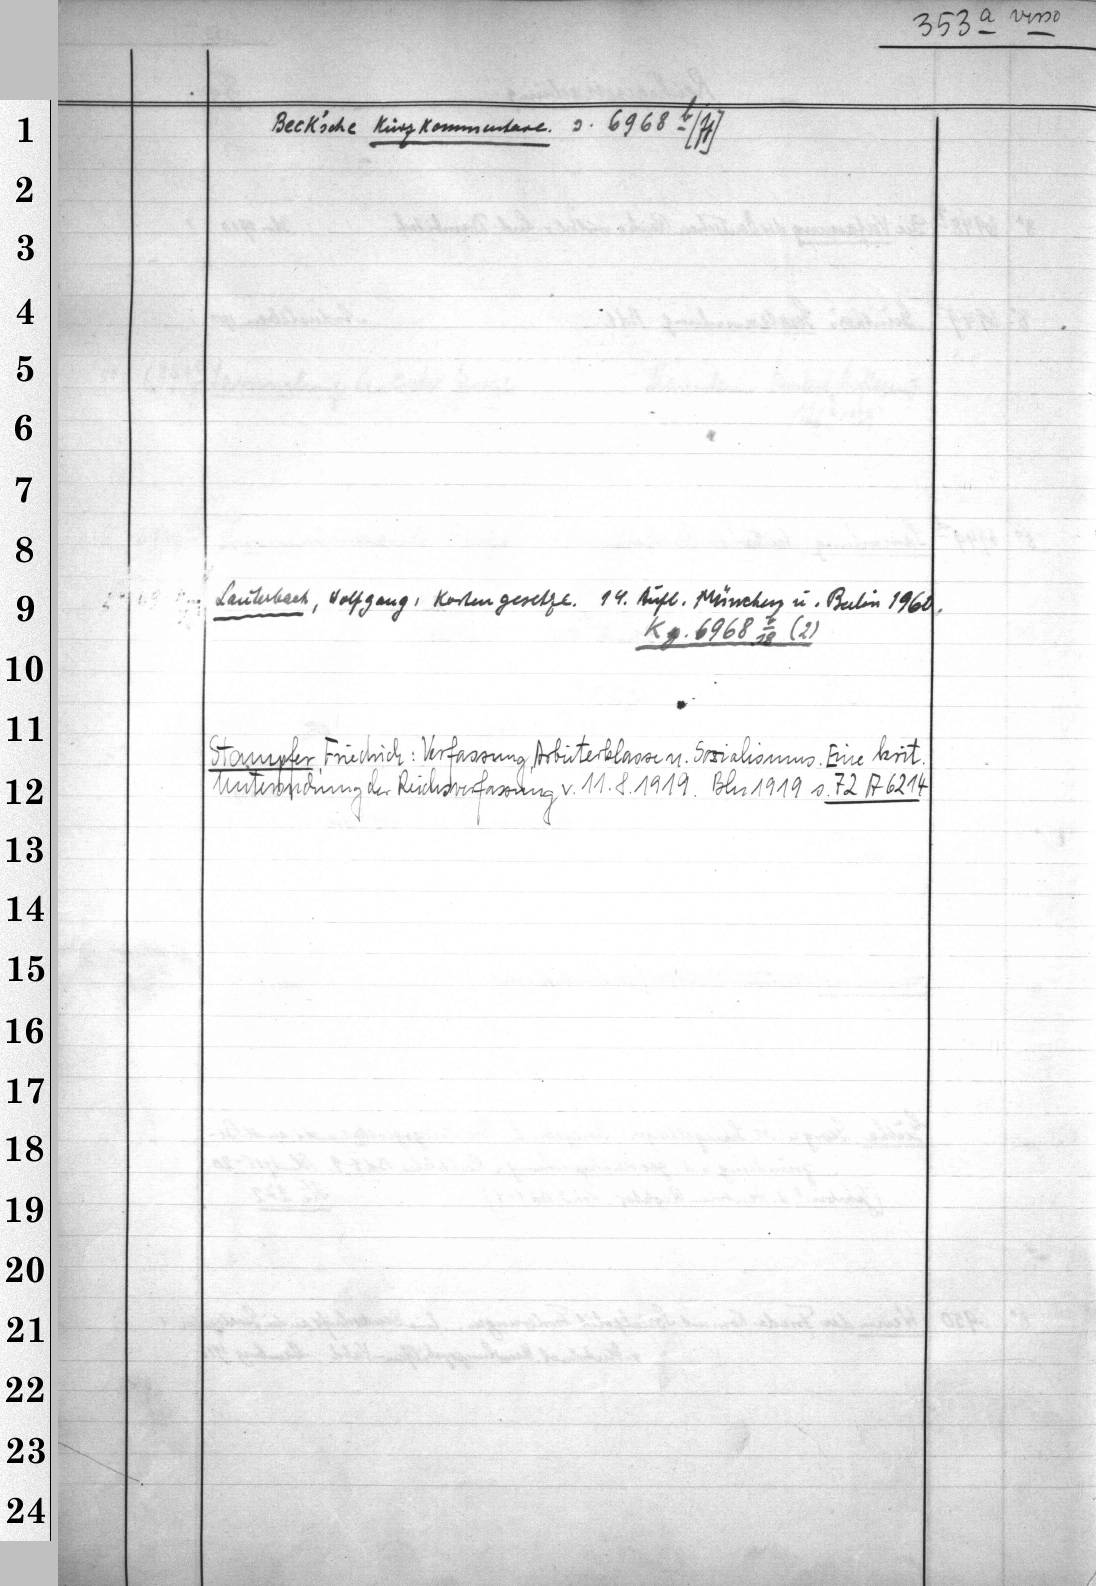 353 a verso
1 Beck'sche Kurzkommentare. s. 6968 b/[ff]
2
3
4
5
6
7
8
9 Lauterbach, Wolfgang, Kostengesetze. 14. Aufl. München u. Berlin 1960.
Kg. 6968 b/18 (2)
10
11 Stampfer, Friedrich: Verfassung, Arbeiterklasse u. Sozialismus. Eine krit.
12 Untersuchung der Reichsverfassung v. 11.8.1919. Bln 1919 s. 72 A 6214
13
14
15
16
17
18
19
20
21
22
23
24